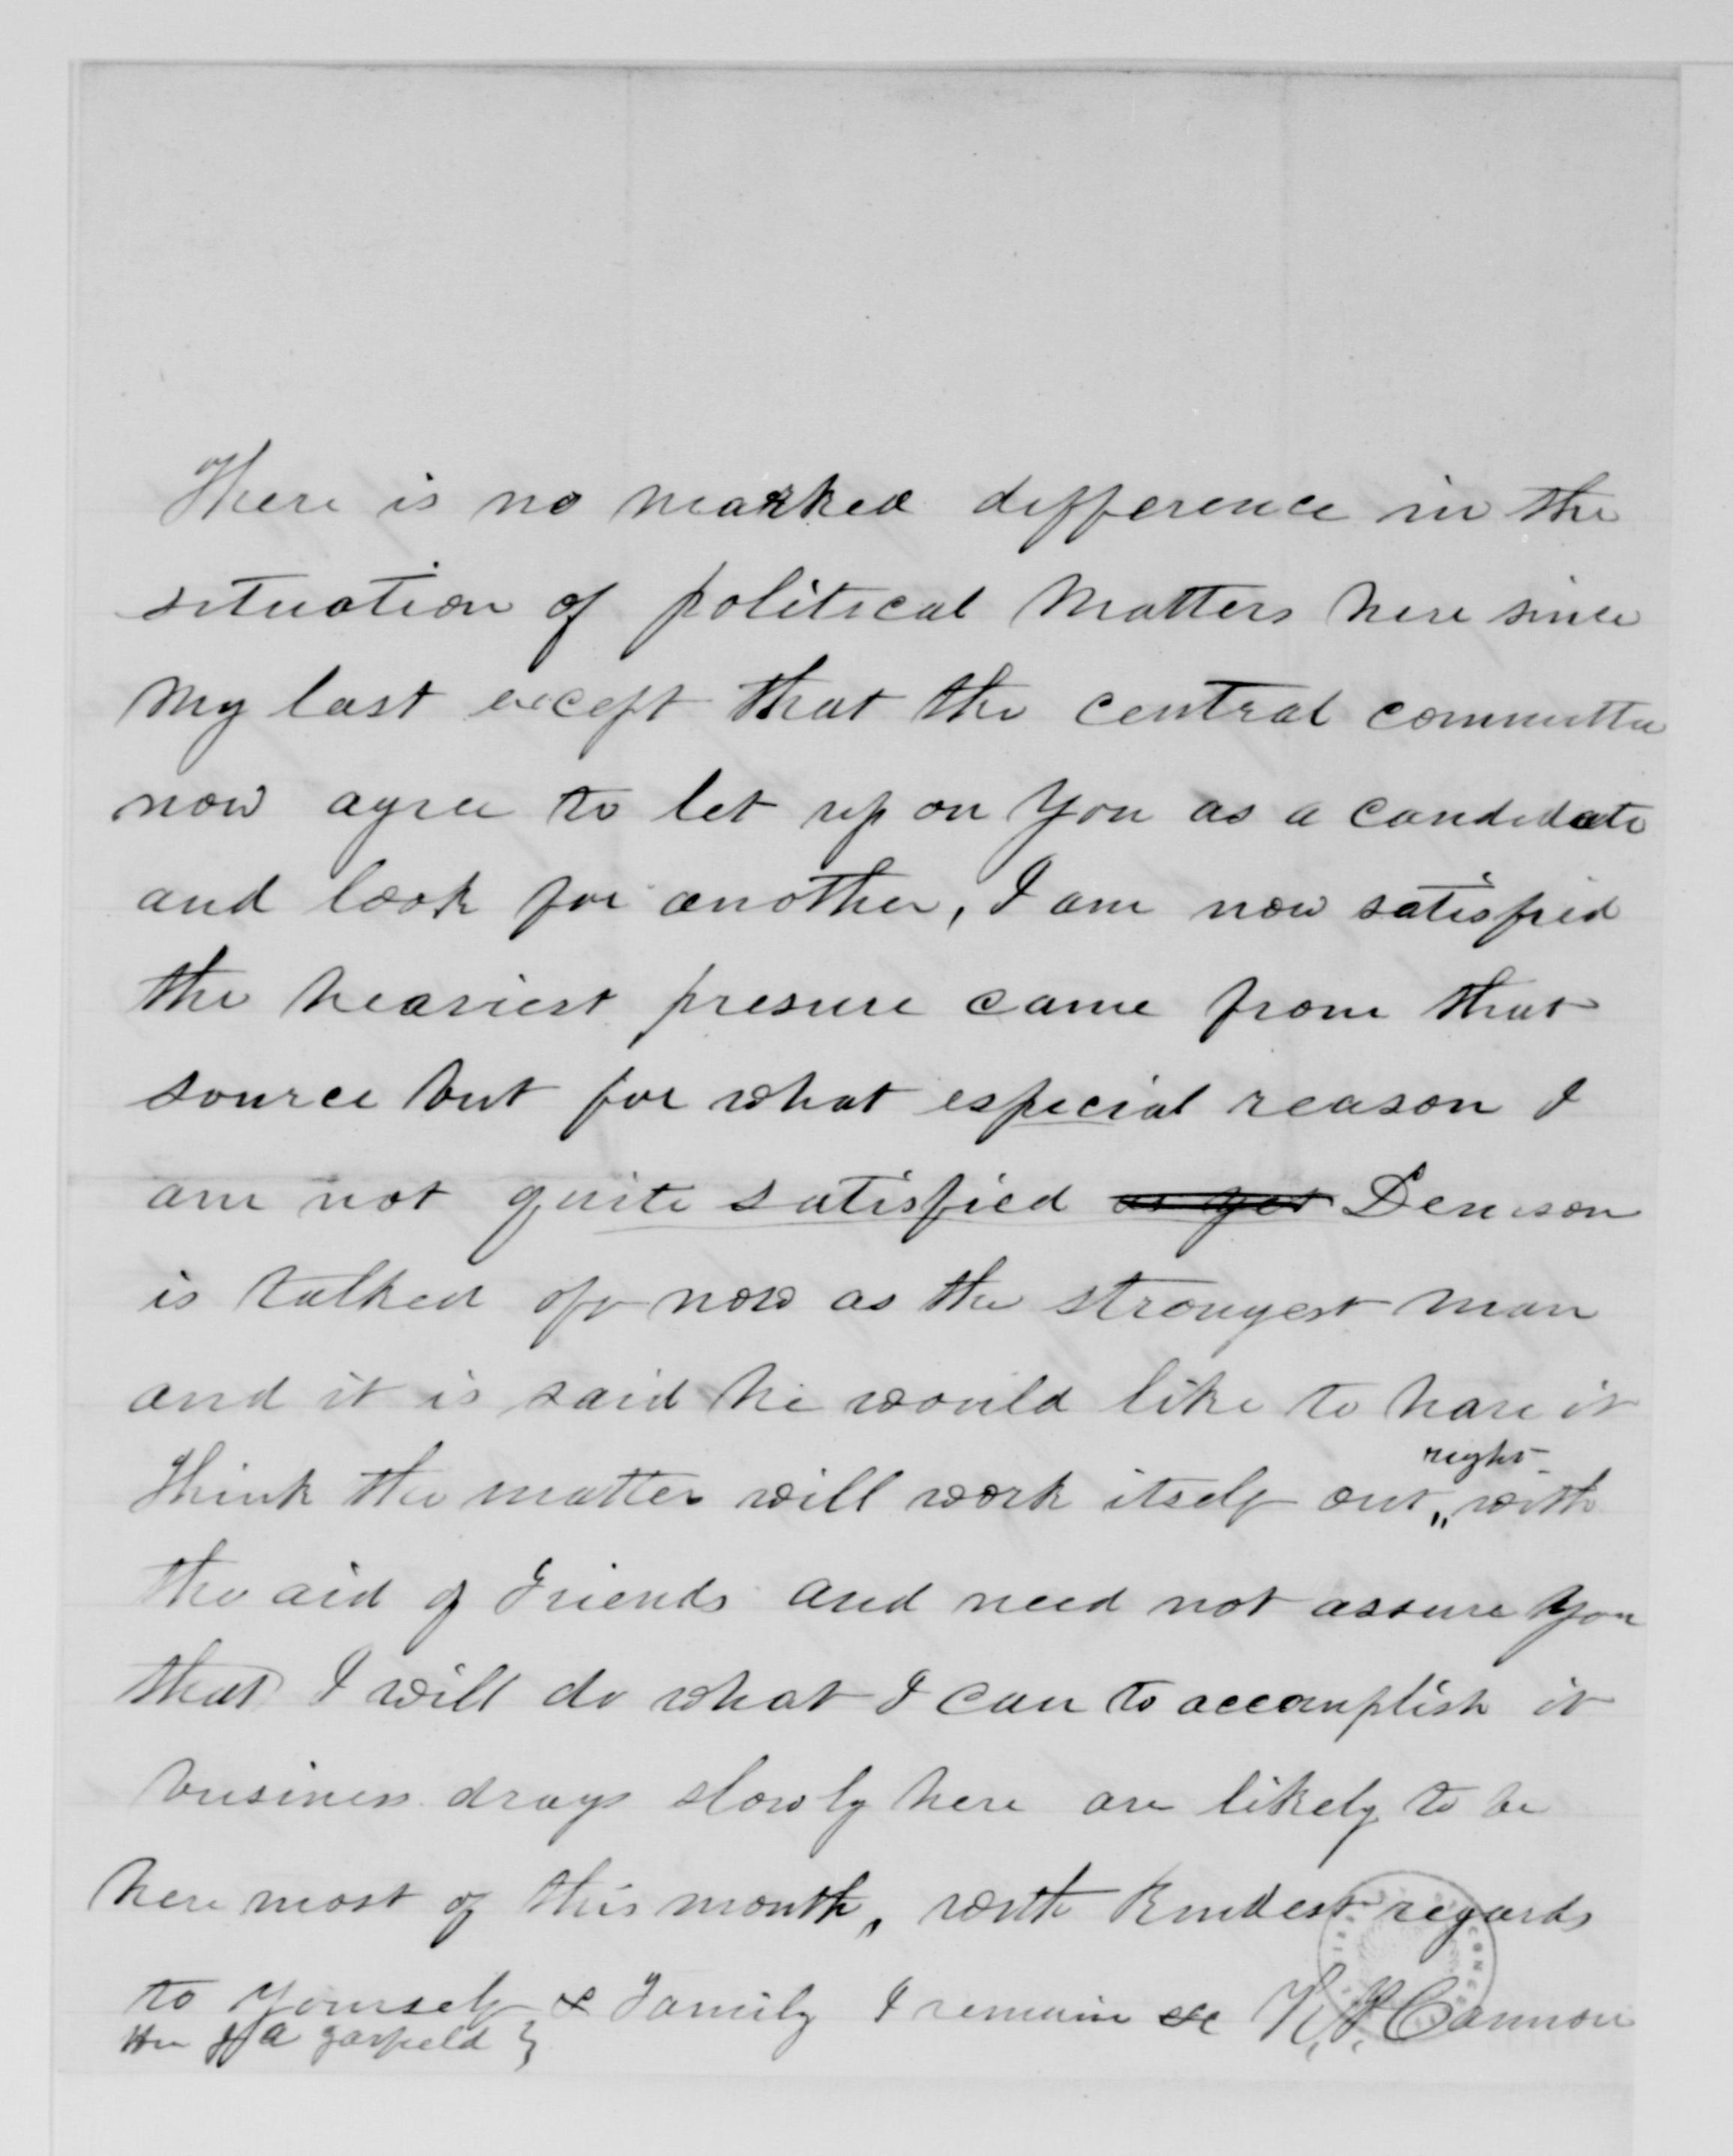 There is no marked difference in the
situation of political Matters here since
My last except that the central committee
now agree to let up on You as a candidate
and look for another, I am now satisfied
the heaviest presure came from that
source but for what especial reason I
am not quite satisfied as yet Denison
is talked off now as the strongest man
and it is said he would like to have it
right
think the matter will work itself out „ with
the aid of Friends and need not assure You
that I will do what I can to accomplish it
business drags slowly here are likely to be
here most of this month, with Kindest regards
to Yourself & Family I remain &c Cannon
Hon J A Garfield }